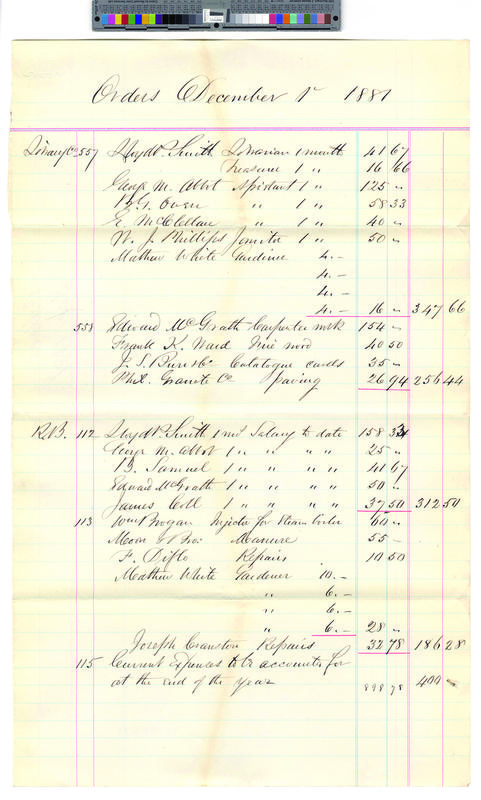 Orders December 1st 1881
Library Co 557 Lloyd P. Smith Librarian 1 month 41 67
Treasurer 1 " 16 66
George M. Abbot Assistant 1 " 125 "
B. G. Owen " 1 " 58 33
E. McClellan " 1 " 40 "
W. J. Phillips Janitor 1 " 50 "
Mathew White Gardiner 4.–
4.–
4.–
4.– 16 " 347 66
558 Edward McGrath Carpenter work 154 "
Frank K. Ward Fire wood 40 50
Catalogue cards 35 "
Phil. Granite Co Paving 26 94 256 44
R.B. 112 Lloyd P. Smith 1 mo Salary to date 158 33
George M. Abbot 1 " " " " 25 "
B. Samuel 1 " " " " 41 67
Edward McGrath 1 " " " " 50 "
James Coll 1 " " " " 37 50 312 50
113 Wm Brogan Injector for Steam boiler 60 "
Moon & Bro: Manure 55 –
F. Repairs 10 50
Matthew White Gardener 10.–
" 6.–
" 6.–
" 6.– 28 "
Joseph Cranston Repairs 32 78 186 28
115 Current Expenses to be accounted for
at the end of the year 898 78 400 "